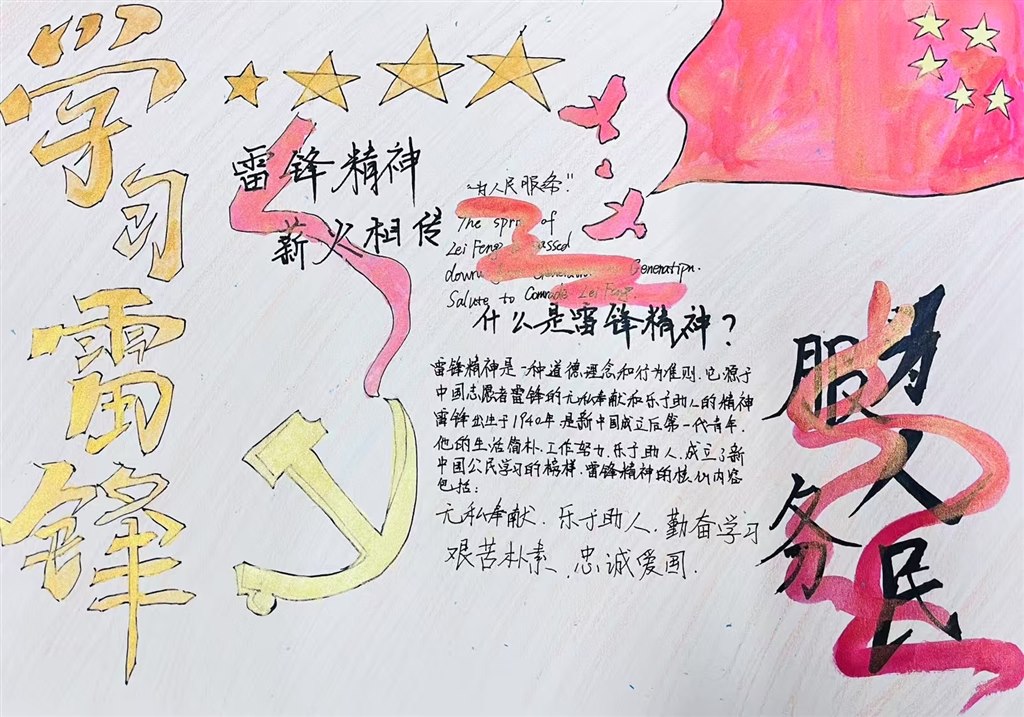 学习雷锋
雷锋精神
薪火相传
"为人民服务"
The of
Lei Feng passed
down Generation.
Salute to Comrade Lei Feng.
什么是雷锋精神？
雷锋精神是一种道德理念和行为准则，它源于
中国志愿者雷锋的无私奉献和乐于助人的精神
雷锋出生于1940年，是新中国成立后第一代青年，
他的生活简朴、工作努力、乐于助人，成立了新
中国公民学习的榜样，雷锋精神的核心内容
包括：
无私奉献、乐于助人、勤奋学习
艰苦朴素、忠诚爱国.
为人民
服务